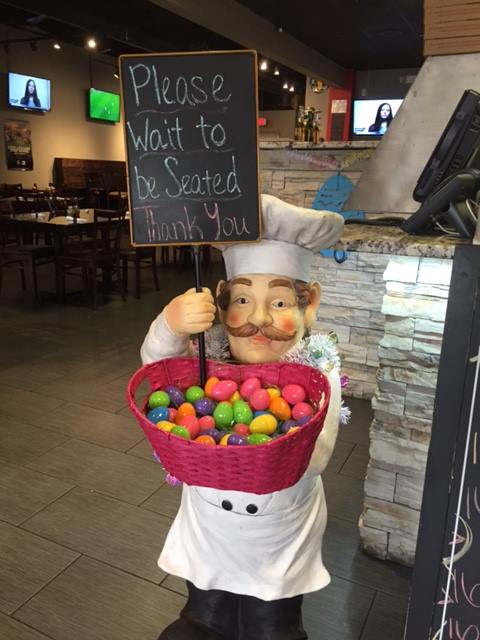 Please
Wait to
be Seated
Thank You